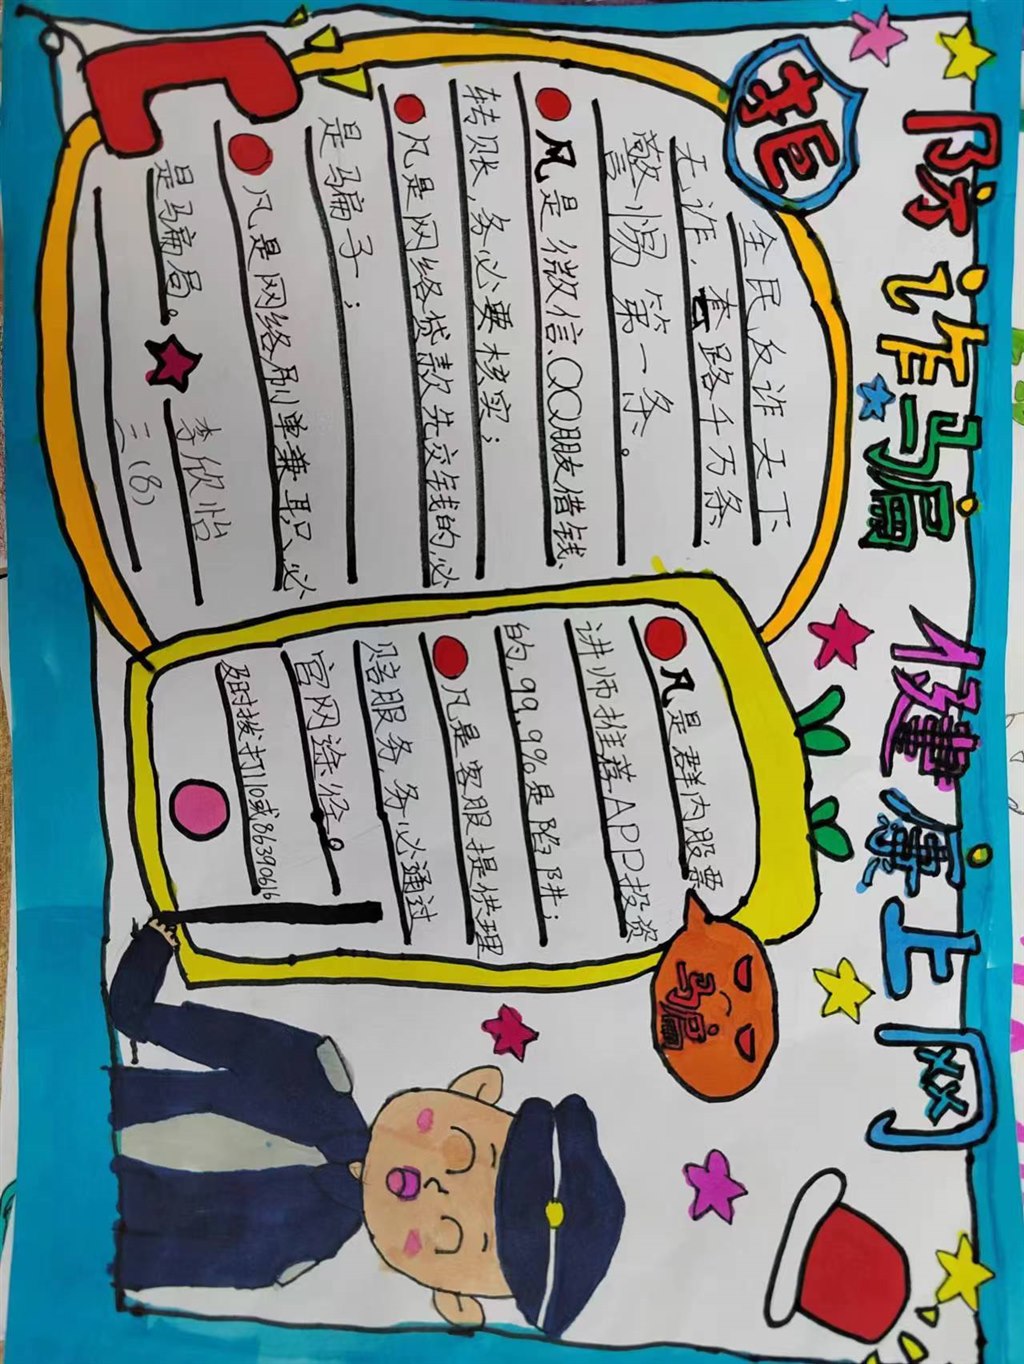 防诈骗 健康上网
拒
全民反诈天下
无诈，套路千万条，
警惕第一条。
凡是微信、QQ朋友借钱、
转账，务必要核实；
凡是网络贷款先交钱的，必
是骗子；
凡是网络刷单兼职、必
是骗局。
李欣怡
三（8）
凡是群内股票
讲师推荐APP投资
的，99.9%是陷阱；
凡是客服提供理
赔服务，务必通过
官网途径。
及时拨打110或86390616
骗